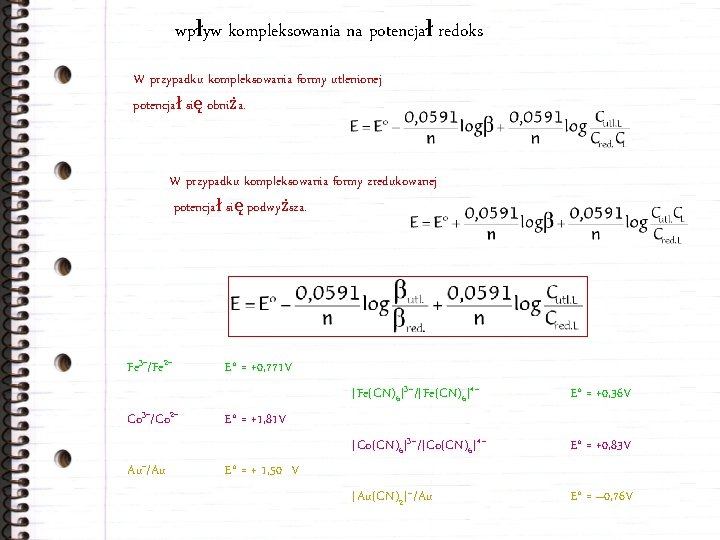 wpływ kompleksowania na potencjał redoks
W przypadku kompleksowania formy utlenionej
potencjał się obniża.
E = E° − 0,0591/n logβ + 0,0591/n log C utl.L / C red. C L
W przypadku kompleksowania formy zredukowanej
potencjał się podwyższa.
E = E° + 0,0591/n logβ + 0,0591/n log C utl. C L / C red.L
E = E° − 0,0591/n log β utl. / β red. + 0,0591/n log C utl.L / C red.L
Fe³⁻/Fe²⁻ E° = +0,771V
|Fe(CN)₆|³⁻/|Fe(CN)₆|⁴⁻ E° = +0,36V
Co³⁻/Co²⁻ E° = +1,81V
|Co(CN)₆|³⁻/|Co(CN)₆|⁴⁻ E° = +0,83V
Au⁻/Au E° = + 1,50 V
|Au(CN)₂|⁻/Au E° = –0,76V